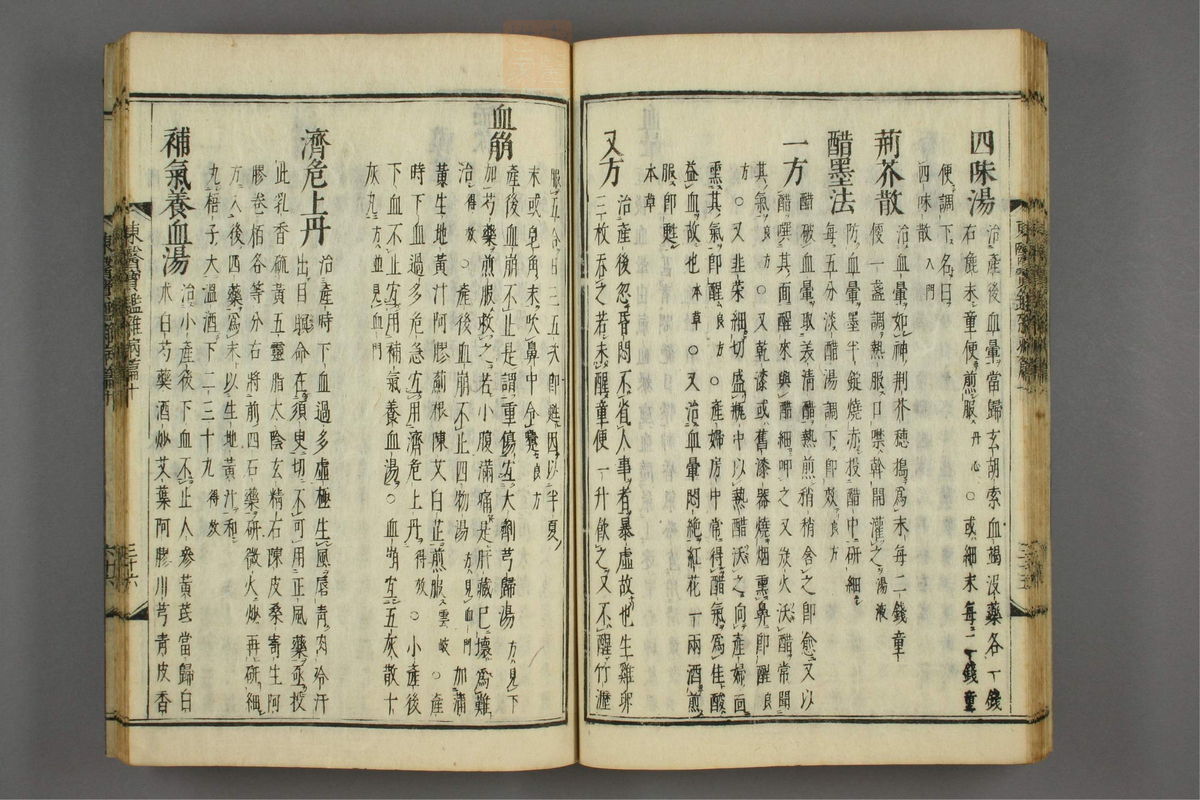 四味湯 治產後血暈當歸玄胡索血竭沒藥各一錢
右麄末童便煎服丹心○或細末每一錢童
便調下名曰
四味散入門
荊芥散 治血暈如神荊芥穗搗爲末每二錢童
便一盞調熱服口噤斡開灌之湯液
醋墨法 防血暈墨半錠燒赤投醋中研細
每五分淡醋湯調下卽效良方
一方 醋破血暈取美清醋熱煎稍稍含之卽愈又以
醋噀其面醒來與醋細呷之又炭火沃醋常聞
其氣良方○又乾漆或舊漆器燒烟熏鼻卽醒良
方○又韭菜細切盛瓶中以熱醋沃之向產婦面
熏其氣卽醒良方○產婦房中常得醋氣爲佳酸
益血故也本草○又治血暈悶絶紅花一兩酒煎
服卽甦
本草
又方 治產後忽昏悶不省人事者暴虛故也生雞卵
三枚吞之若未醒童便一升飮之又不醒竹瀝
服五合日三五次卽甦因以半夏
末或皂角末吹鼻中
良方
血崩 產後血崩不止是謂重傷宜大劑芎歸湯方見下
加芍藥煎服救之若小腹滿痛是肝藏已壞爲難
治得效○產後血崩不止四物湯方見血門加蒲
黃生地黃汁阿膠薊根陳艾白芷煎服雲岐○產
時下血過多危急宜用濟危上丹得效○小產後
下血不止宜用補氣養血湯○血崩宜五灰散十
灰丸方並見血門
濟危上丹 治產時下血過多虛極生風唇靑肉冷汗
出目瞑命在須臾切不可用正風藥亟投
此乳香硫黃五靈脂大陰玄精石陳皮桑寄生阿
膠卷栢各等分右將前四石藥研微火炒再硏細
方入後四藥爲末以生地黃汁和
丸梧子大溫酒下二三十丸得效
補氣養血湯 治小產後下血不止人參黃芪當歸白
朮白芍藥酒炒艾葉阿膠川芎靑皮香
東醫寶鑑雜病篇十
三十六